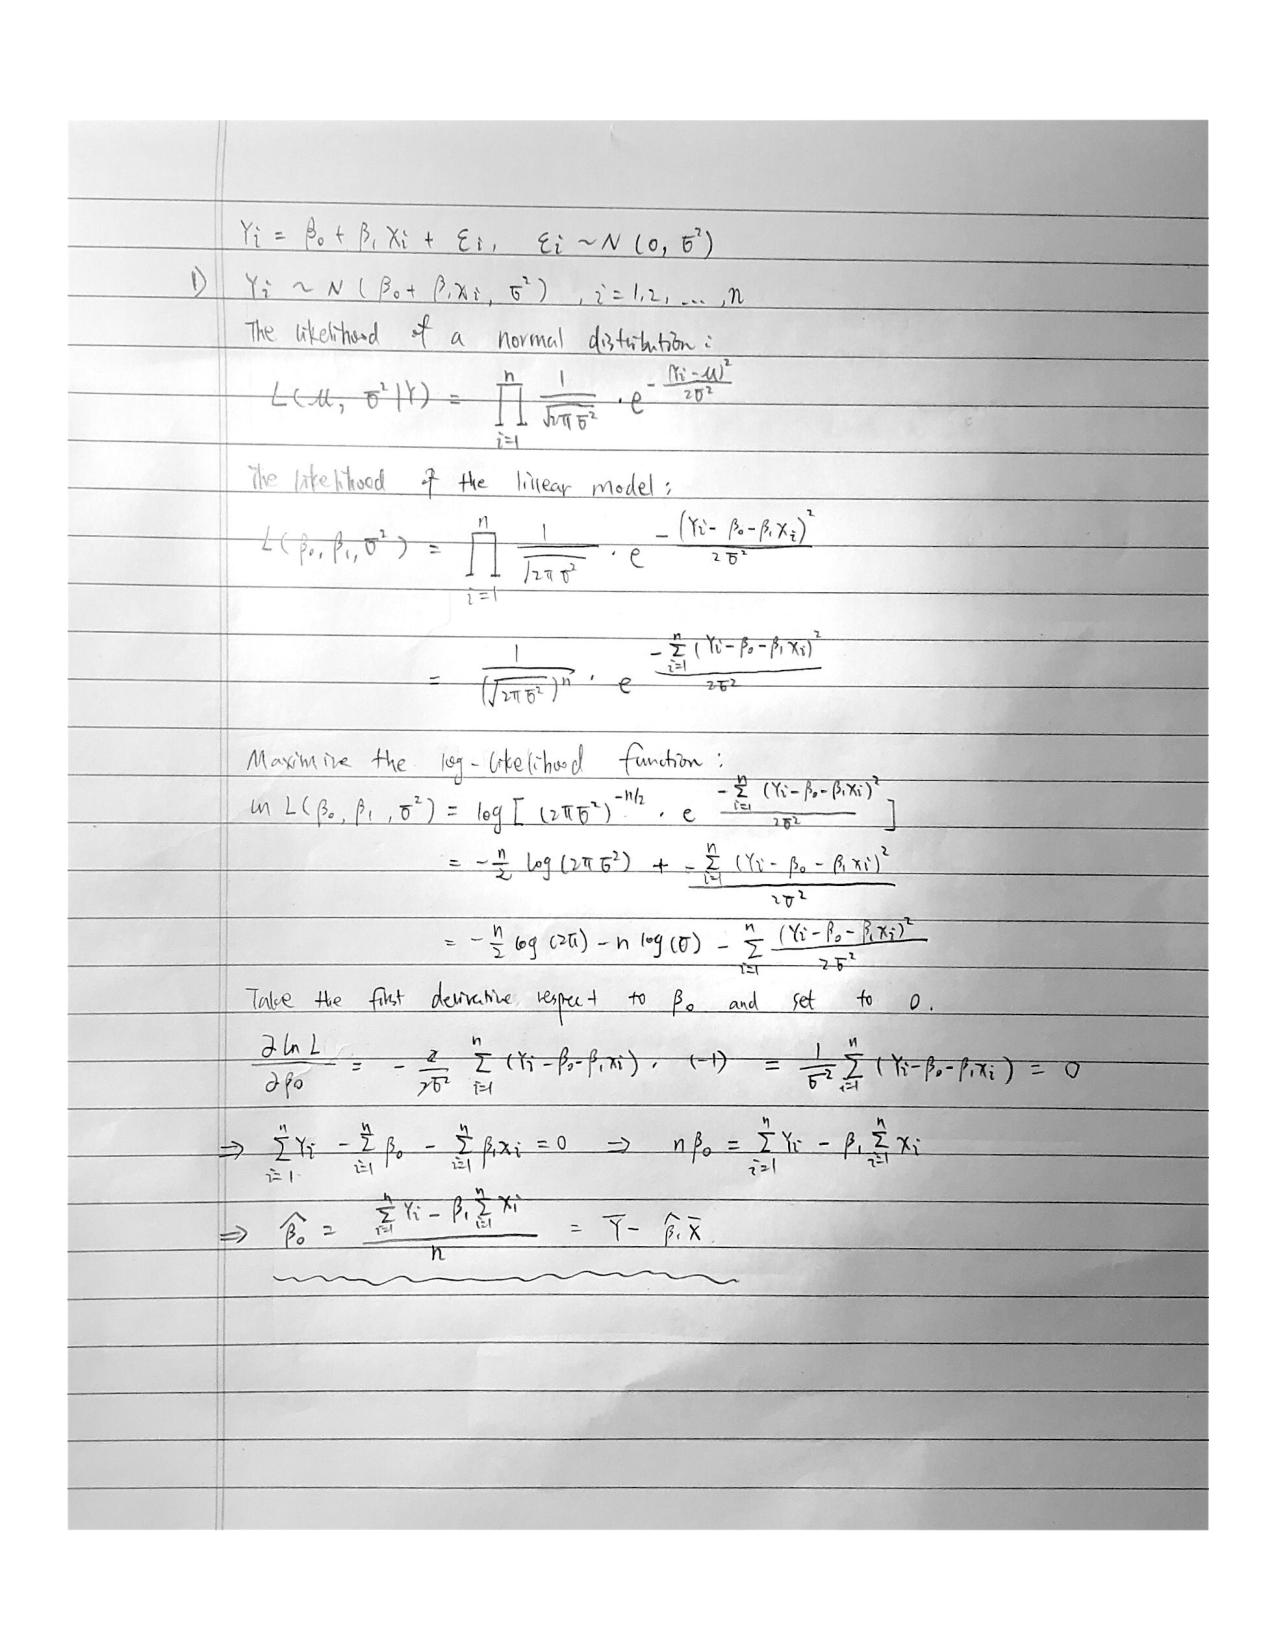 Yi = β₀ + β₁ Xi + εi, εi ~ N (0, σ²)
1) Yi ~ N ( β₀ + β₁Xi, σ² ) , i = 1, 2, ..., n
The likelihood of a normal distribution :
L(μ, σ² | Y) = ∏_{i=1}^{n} 1/√(2πσ²) · e^{-(Yi-μ)²/2σ²}
The likelihood of the linear model ;
L( β₀, β₁, σ² ) = ∏_{i=1}^{n} 1/√(2πσ²) · e^{-(Yi-β₀-β₁Xi)²/2σ²}
= 1/(√(2πσ²))ⁿ · e^{-∑_{i=1}^{n}(Yi-β₀-β₁Xi)²/2σ²}
Maximize the log-likelihood function :
ln L( β₀, β₁, σ² ) = log [ (2πσ²)^{-n/2} · e^{-∑_{i=1}^{n}(Yi-β₀-β₁Xi)²/2σ²} ]
= -n/2 log (2πσ²) + -∑_{i=1}^{n} (Yi - β₀ - β₁Xi)²/2σ²
= -n/2 log (2π) - n log (σ) - ∑_{i=1}^{n} (Yi-β₀-β₁Xi)²/2σ²
Take the first derivative respect to β₀ and set to 0.
∂ln L/∂β₀ = - 2/2σ² ∑_{i=1}^{n} (Yi-β₀-β₁Xi) · (-1) = 1/σ² ∑_{i=1}^{n} (Yi-β₀-β₁Xi) = 0
⇒ ∑_{i=1}^{n} Yi - ∑_{i=1}^{n} β₀ - ∑_{i=1}^{n} β₁Xi = 0 ⇒ nβ₀ = ∑_{i=1}^{n} Yi - β₁ ∑_{i=1}^{n} Xi
⇒ β̂₀ = (∑_{i=1}^{n} Yi - β₁ ∑_{i=1}^{n} Xi)/n = Ȳ - β̂₁ X̄.